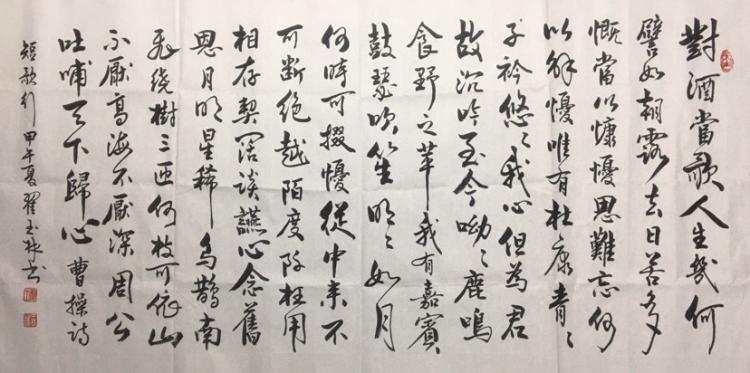 對酒當歌人生幾何
譬如朝露去日苦多
慨當以慷懮思難忘何
以解懮唯有杜康青〻
子衿悠〻我心但為君
故沉吟至今呦〻鹿鳴
食野之苹我有嘉賓
鼓瑟吹笙明〻如月
何時可掇懮從中來不
可斷絕越陌度阡枉用
相存契闊談讌心念舊
恩月明星稀烏鵲南
飛繞樹三匝何枝可依山
不厭高海不厭深周公
吐哺天下歸心曹操詩
短歌行 甲午夏翟玉